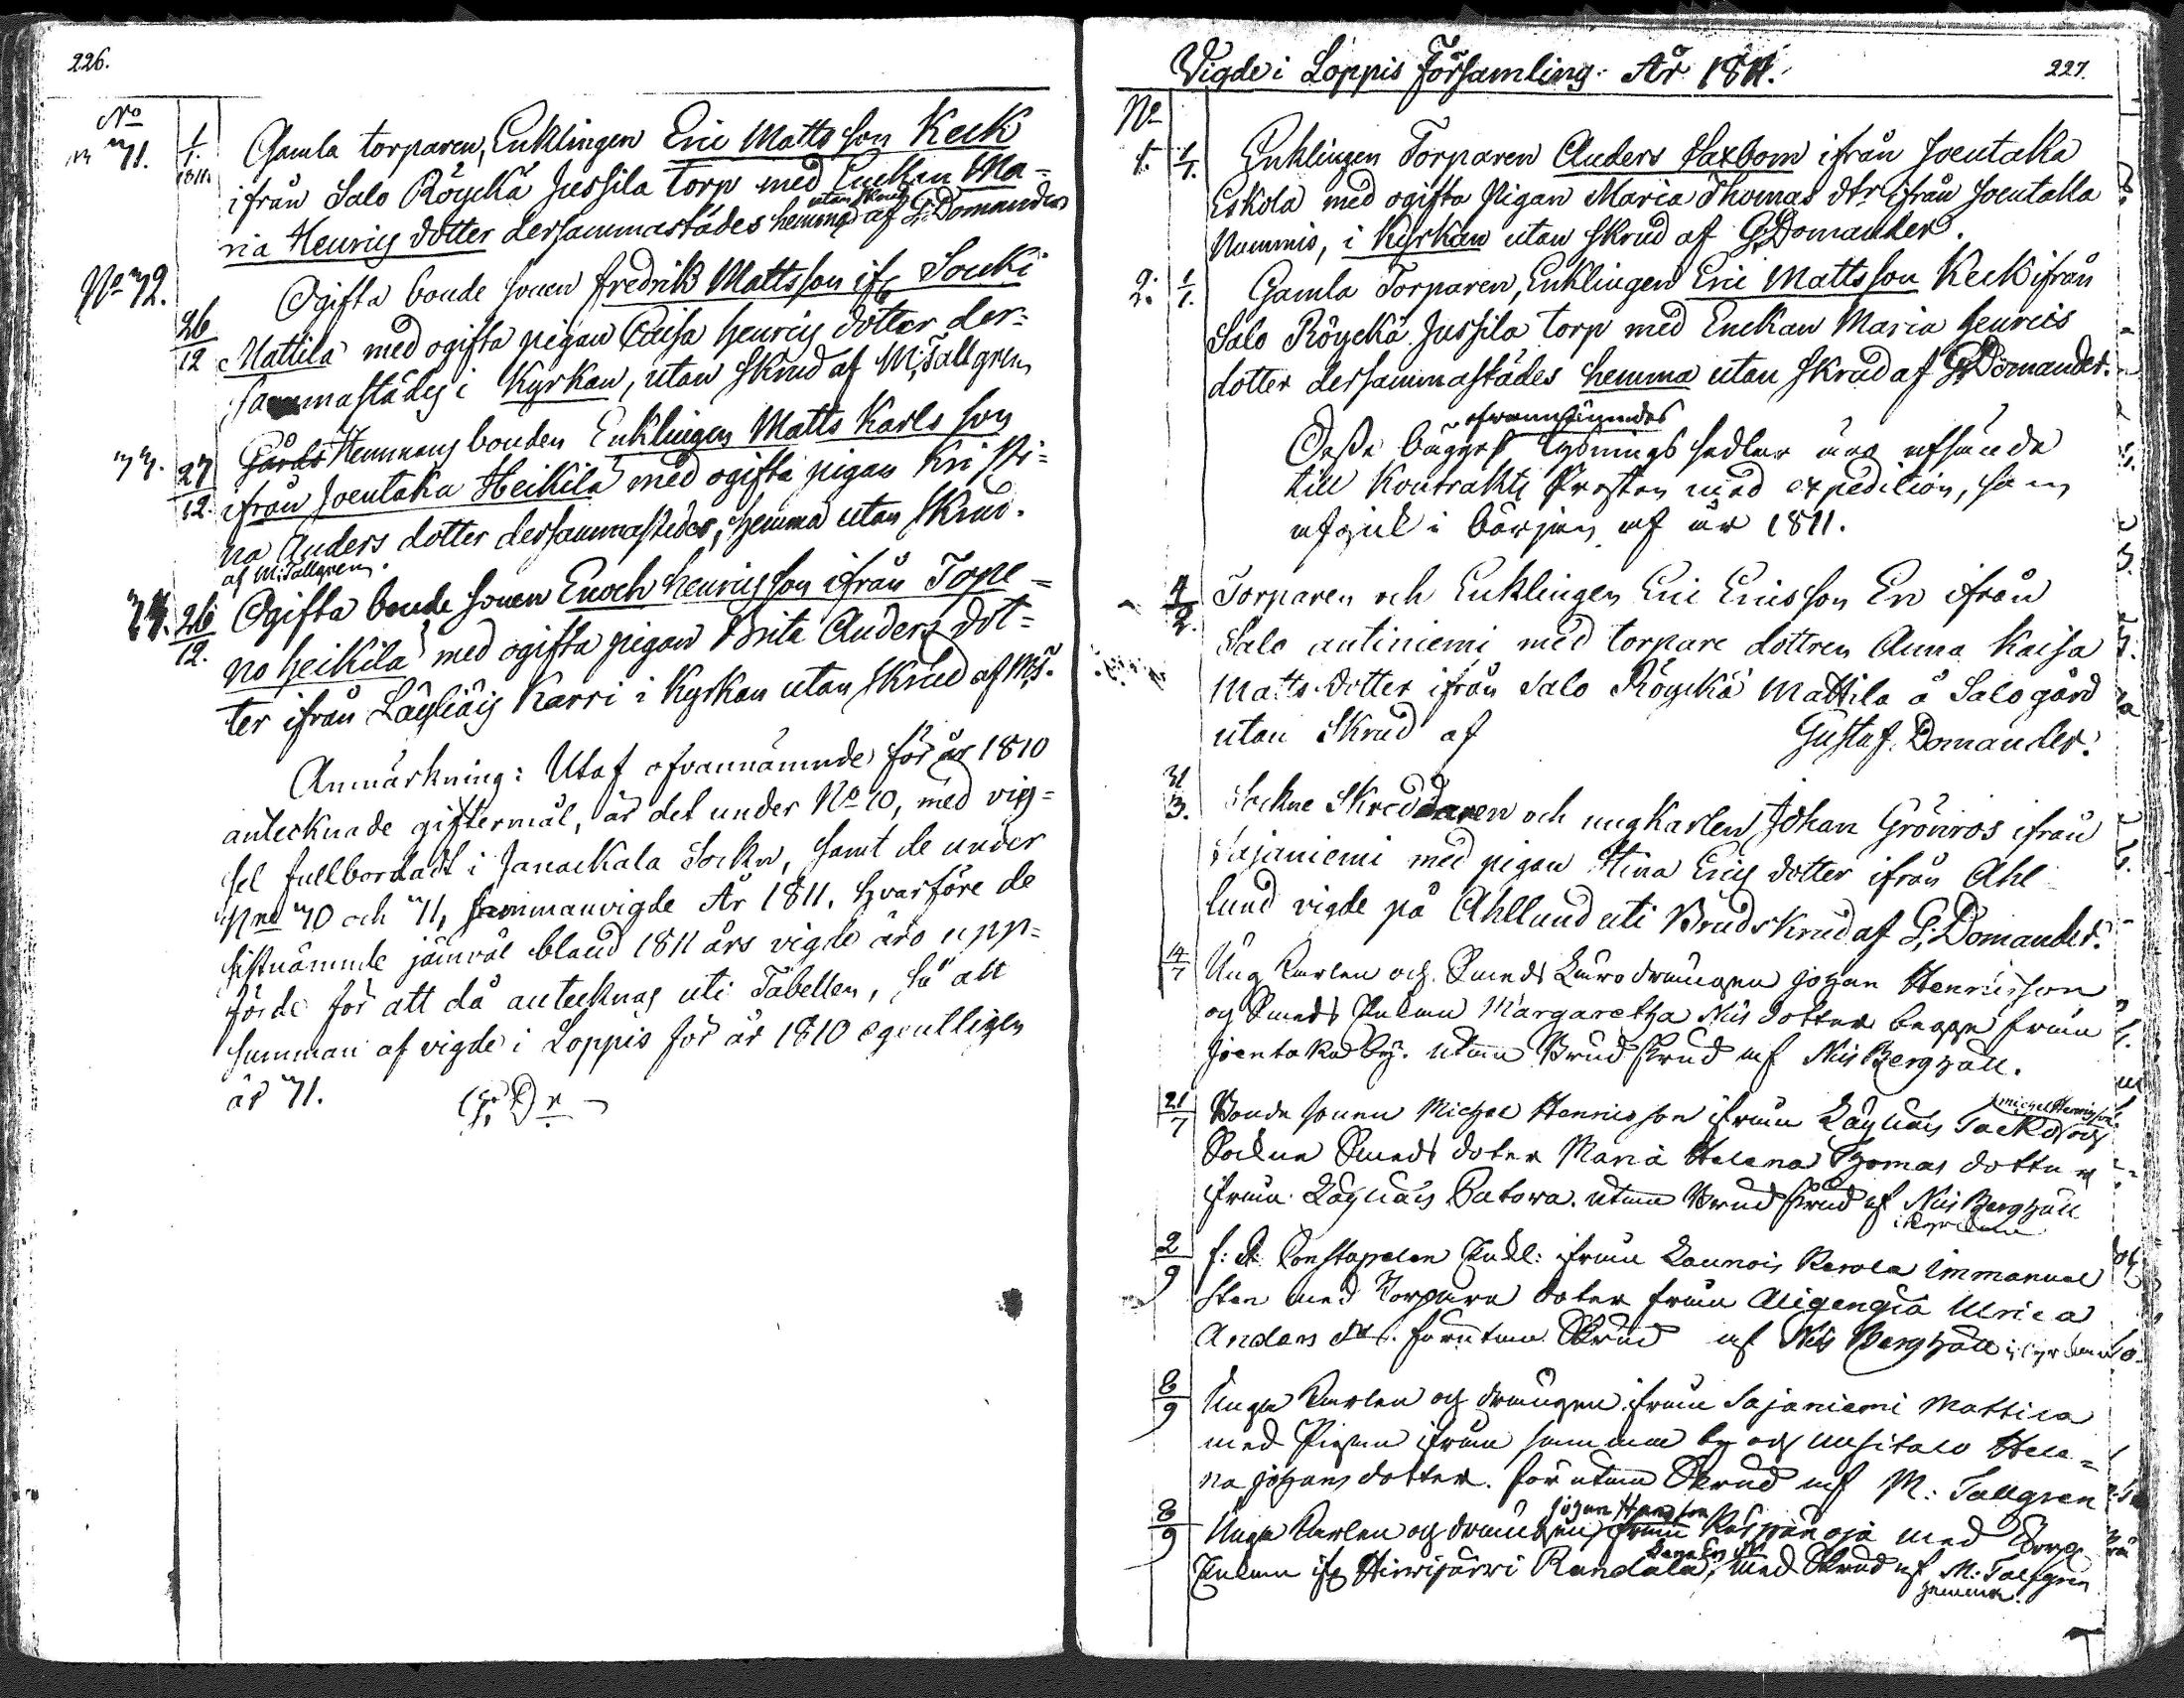 226.
No
71. 1/1. 1811. Gamla torparen, Enklingen Eric Matts son Keck
ifrån Salo Röyckä Jussila torp med Enckan Ma=
utan skrud
ria Henrics dotter dersammastädes hemma af G: Domander
No 72. Ogifta bonde sonen fredrik Mattsson ifr Souki
26/12 Mattila med ogifta pigan Caisa henrics dotter der=
sammastädes i Kyrkan, utan skrud af M: Tallgren
73. 27/12. Gårds Hemmans bonden Enklingen Matts Karls son
ifrån Joentaka Heikilä med ogifta pigan Kristi=
na Anders dotter dersammastedes, hemma utan skrud.
af M: Tallgren.
74. 26/12. Ogifta bonde sonen Enoch henrics son ifrån Tope=
no heikilä med ogifta pigan Brita Anders dot=
ter ifrån Läyliäis Karri i Kyrkan utan skrud af M; T.
Anmärkning: Utaf ofvannämnde för år 1810
antecknade giftermål, är det under No 10, med vig=
sel fullbordadt i Janackala Sockn, samt de under
Nris 70 och 71, sammanvigde År 1811, hvarföre de
sistnämnde jämväl bland 1811 års vigde äro upp=
förde för att då antecknas uti Tabellen, så att
summan af vigde i Loppis för år 1810 egentligen
är 71.
Vigde i Loppis Församling. År 1811. 227.
No
1. 1/1. Enklingen Torparen Anders Saxbom ifrån Joentaka
Eskola med ogifta Pigan Maria Thomas dtr ifrån Joentaka
Nummis, i Kyrkan utan skrud af G; Domander.
2. 1/1. Gamla Torparen, Enklingen Eric Mattsson Keck ifrån
Salo Röyckä Jussila torp med Enckan Maria Henrics
dotter dersammastädes hemma utan skrud af G; Domander.
ofvannämndes
Desse bägges Lysnings sedlar äro afsände
till Kontrakts Prosten med expedition, som
afgick i början af år 1811.
4/2. Torparen och Enklingen Eric Ericsson En ifrån
Salo antiniemi med torpare dottren Anna Kaisa
Matts dotter ifrån Salo Röyckä Mattila å Salo gård
utan Skrud af Gustaf Domander.
31/3. Sockne Skreddaren och ungkarlen Johan Grönros ifrån
Sajaniemi med pigan Stina Erics dotter ifrån Ahl
lund vigde på Ahllund uti Brudskrud af G; Domander.
14/7 Ung Karlen och Smeds drängen Johan Henricsson
och Smeds Enkan Margaretha Nils dotter begge från
Joentaka by. utan Brudskrud af Nils Berghäll.
michel Henricsson
21/7 Bonde sonen Michel Henricsson ifrån Läyliäis och
Sockne Smeds doter Maria Helena Thomas dotter
ifrån Läyliäis utan Brudskrud af Nils Berghäll
i Kyrckan
2/9 f: d: Constapelen Enkl: ifrån Launois Kerola Immanuel
Sten med Torpare doter från Aligengiä Ulrica
Anders dtr. förutan Skrud af Nils Berghäll i Kyrckan
8/9 Unge Karlen och drängen ifrån Sajaniemi Mattila
med Pigan ifrån samma by och uusitalo Hele=
na Johans dotter. förutan Skrud af M: Tallgren
Johan Hansson
8/9 Unge Karlen och drängen, ifrån med Torp
Enkan ifr Hirvijärvi Randala, med Skrud af M: Tallgren
hemma.